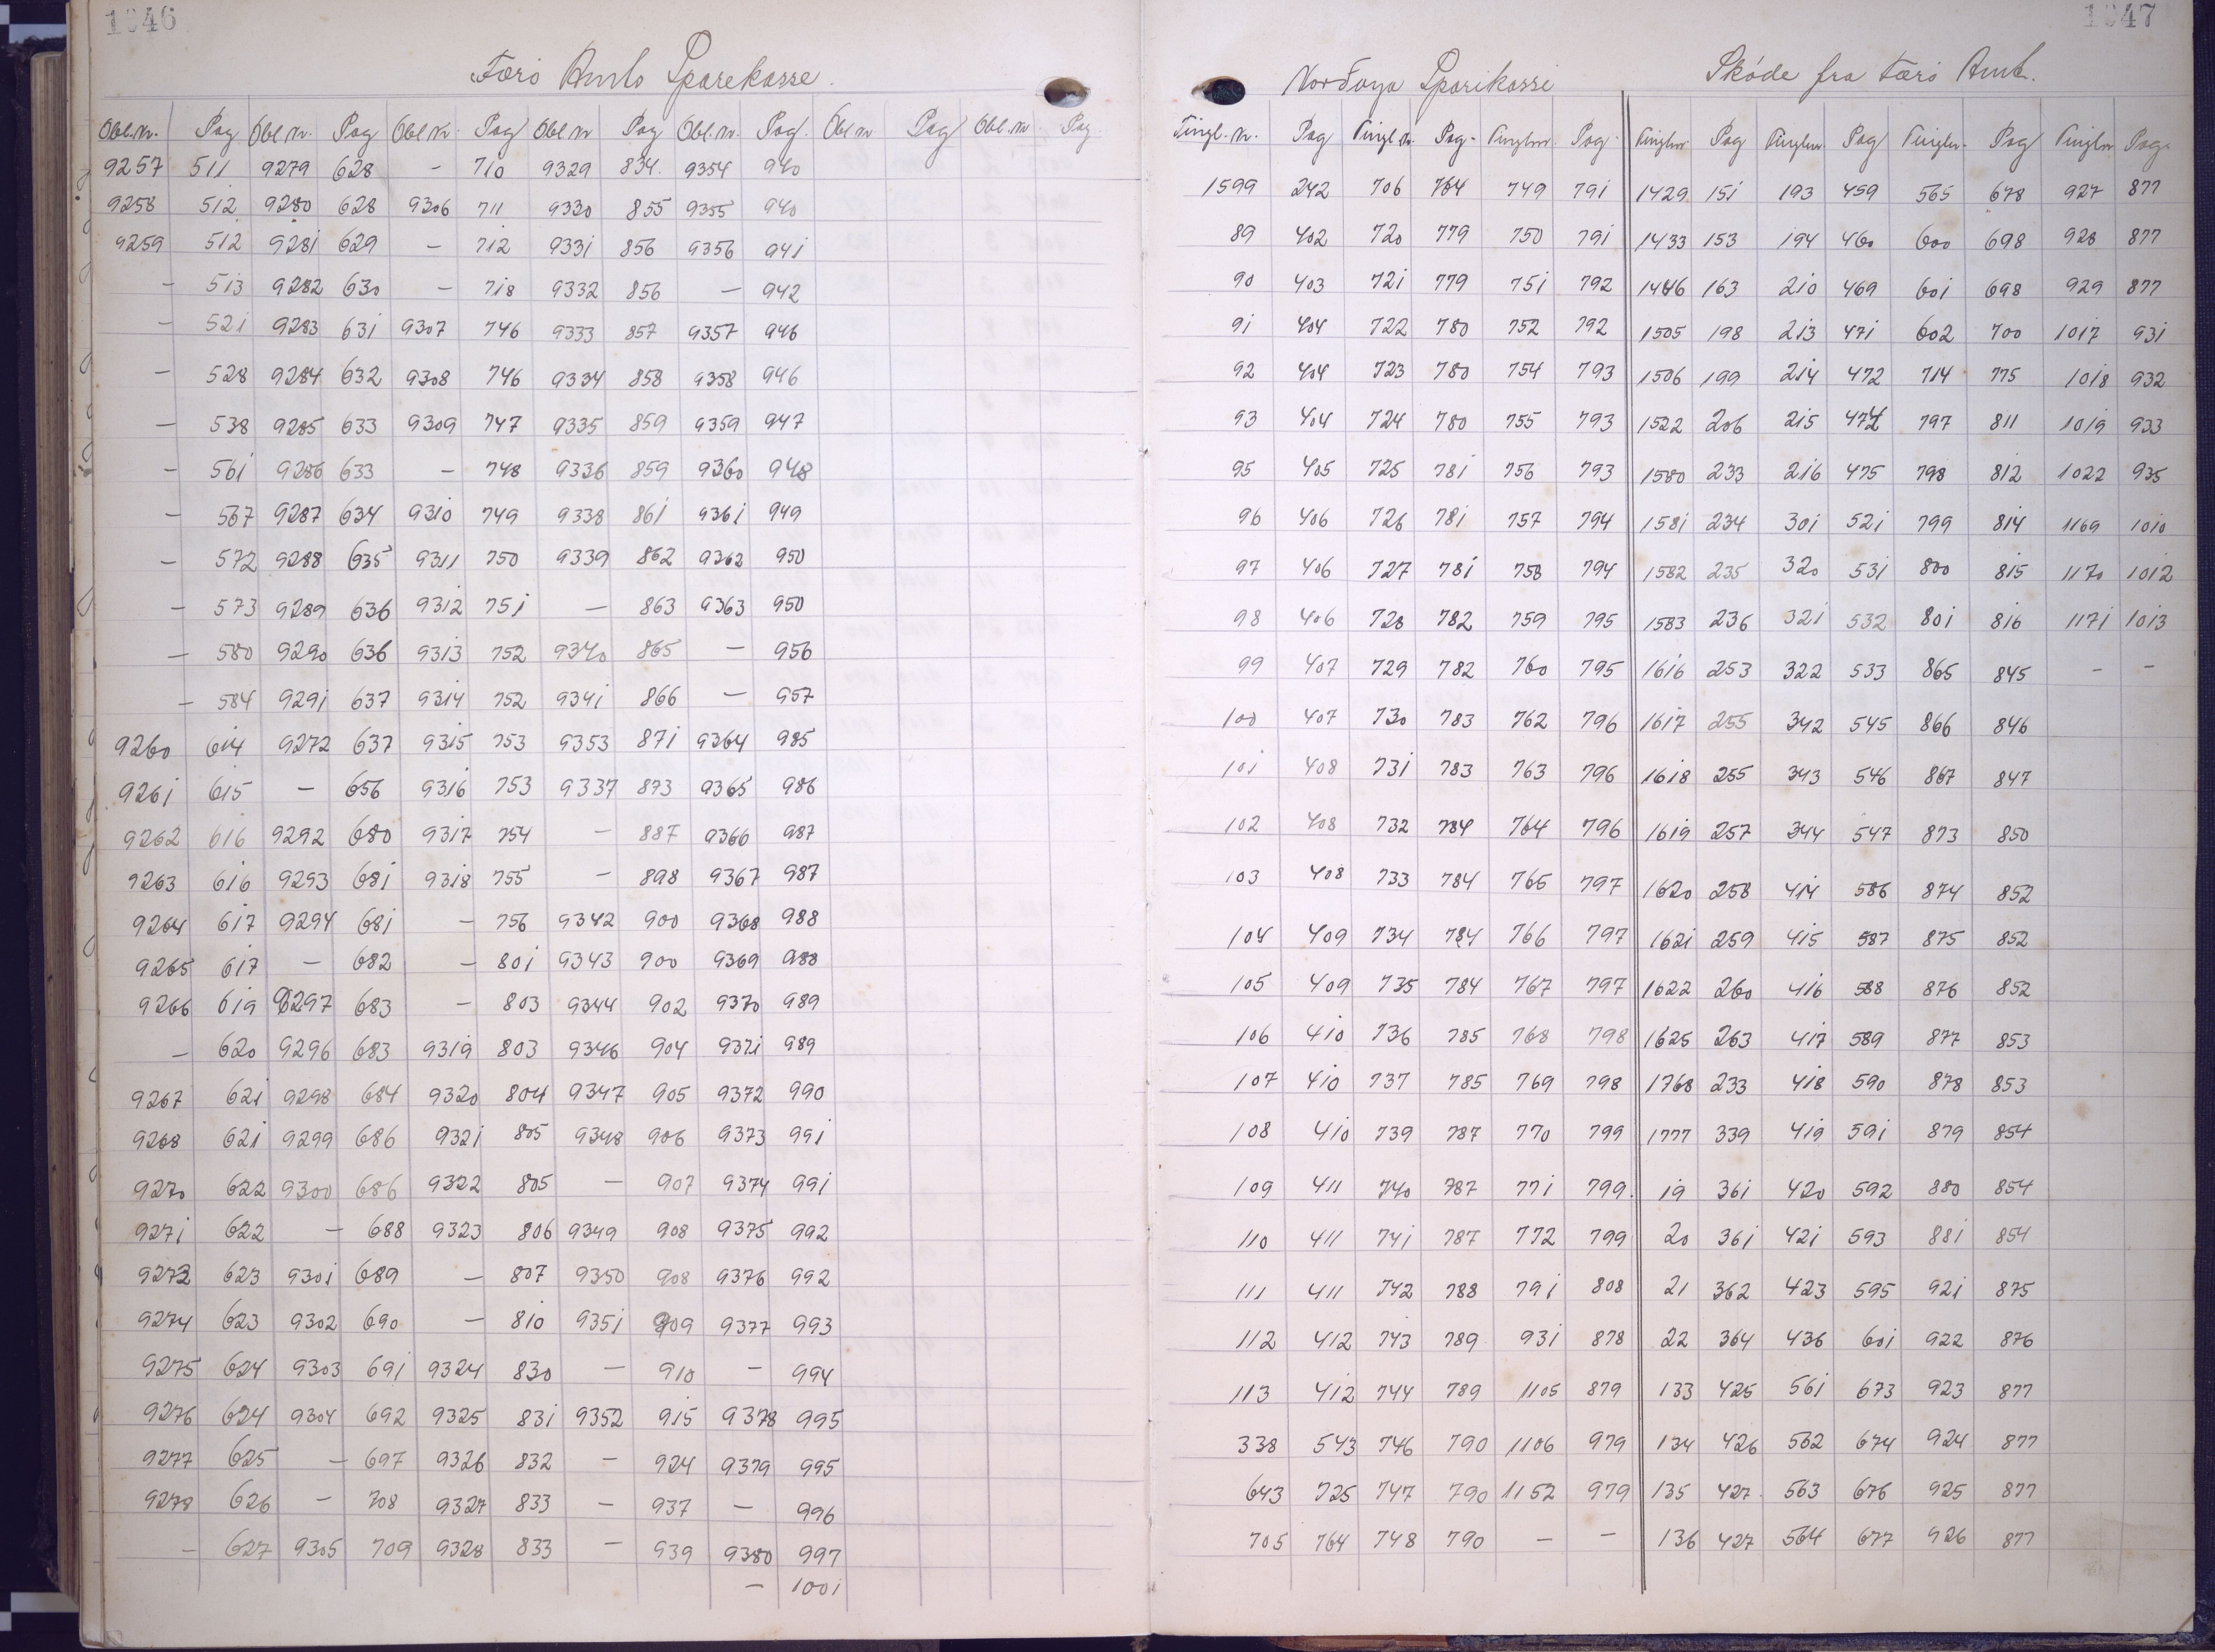 1046
Færö Amts Sparekasse.
Obl.Nr. Pag Obl Nr. Pag Obl Nr. Pag Obl Nr Pag Obl.Nr. Pag. Obl Nr Pag Obl.Nr Pag.
9257 511 9279 628 - 710 9329 834 9354 940
9258 512 9280 628 9306 711 9330 855 9355 940
9259 512 9281 629 - 712 9331 856 9356 941
- 513 9282 630 - 718 9332 856 - 942
- 521 9283 631 9307 746 9333 857 9357 946
- 528 9284 632 9308 746 9334 858 9358 946
- 538 9285 633 9309 747 9335 859 9359 947
- 561 9286 633 - 748 9336 859 9360 948
- 567 9287 634 9310 749 9338 861 9361 949
- 572 9288 635 9311 750 9339 862 9362 950
- 573 9289 636 9312 751 - 863 9363 950
- 580 9290 636 9313 752 9340 865 - 956
- 584 9291 637 9314 752 9341 866 - 957
9260 614 9272 637 9315 753 9353 871 9364 985
9261 615 - 656 9316 753 9337 873 9365 986
9262 616 9292 680 9317 754 - 887 9366 987
9263 616 9293 681 9318 755 - 898 9367 987
9264 617 9294 681 - 756 9342 900 9368 988
9265 617 - 682 - 801 9343 900 9369 988
9266 619 9297 683 - 803 9344 902 9370 989
- 620 9296 683 9319 803 9346 904 9371 989
9267 621 9298 684 9320 804 9347 905 9372 990
9268 621 9299 686 9321 805 9348 906 9373 991
9270 622 9300 686 9322 805 - 907 9374 991
9271 622 - 688 9323 806 9349 908 9375 992
9273 623 9301 689 - 807 9350 908 9376 992
9274 623 9302 690 - 810 9351 909 9377 993
9275 624 9303 691 9324 830 - 910 - 994
9276 624 9304 692 9325 831 9352 915 9378 995
9277 625 - 697 9326 832 - 924 9379 995
9278 626 - 708 9327 833 - 937 - 996
- 627 9305 709 9328 833 - 939 9380 997
- 1001
1047
Nordoya Sparikassi
Skøde fra Færö Amt.
Tingl.Nr. Pag Tingl Nr. Pag. Tinglnr. Pag. Tinglnr Pag Tinglnr Pag Tinglnr. Pag Tinglnr Pag.
1599 242 706 764 749 791 1429 151 193 459 565 678 927 877
89 402 720 779 750 791 1433 153 194 460 600 698 928 877
90 403 721 779 751 792 1446 163 210 469 601 698 929 877
91 404 722 780 752 792 1505 198 213 471 602 700 1017 931
92 404 723 780 754 793 1506 199 214 472 714 775 1018 932
93 404 724 780 755 793 1522 206 215 474 797 811 1019 933
95 405 725 781 756 793 1580 233 216 475 798 812 1022 935
96 406 726 781 757 794 1581 234 301 521 799 814 1169 1010
97 406 727 781 758 794 1582 235 320 531 800 815 1170 1012
98 406 728 782 759 795 1583 236 321 532 801 816 1171 1013
99 407 729 782 760 795 1616 253 322 533 865 845 - -
100 407 730 783 762 796 1617 255 342 545 866 846
101 408 731 783 763 796 1618 255 343 546 867 847
102 408 732 784 764 796 1619 257 344 547 873 850
103 408 733 784 765 797 1620 258 414 586 874 852
104 409 734 784 766 797 1621 259 415 587 875 852
105 409 735 784 767 797 1622 260 416 588 876 852
106 410 736 785 768 798 1625 263 417 589 877 853
107 410 737 785 769 798 1768 233 418 590 878 853
108 410 739 787 770 799 1777 339 419 591 879 854
109 411 740 787 771 799. 19 361 420 592 880 854
110 411 741 787 772 799 20 361 421 593 881 854
111 411 742 788 791 808 21 362 423 595 921 875
112 412 743 789 931 878 22 364 436 601 922 876
113 412 744 789 1105 879 133 425 561 673 923 877
338 543 746 790 1106 979 134 426 562 674 924 877
643 725 747 790 1152 979 135 427 563 676 925 877
705 764 748 790 - - 136 427 564 677 926 877